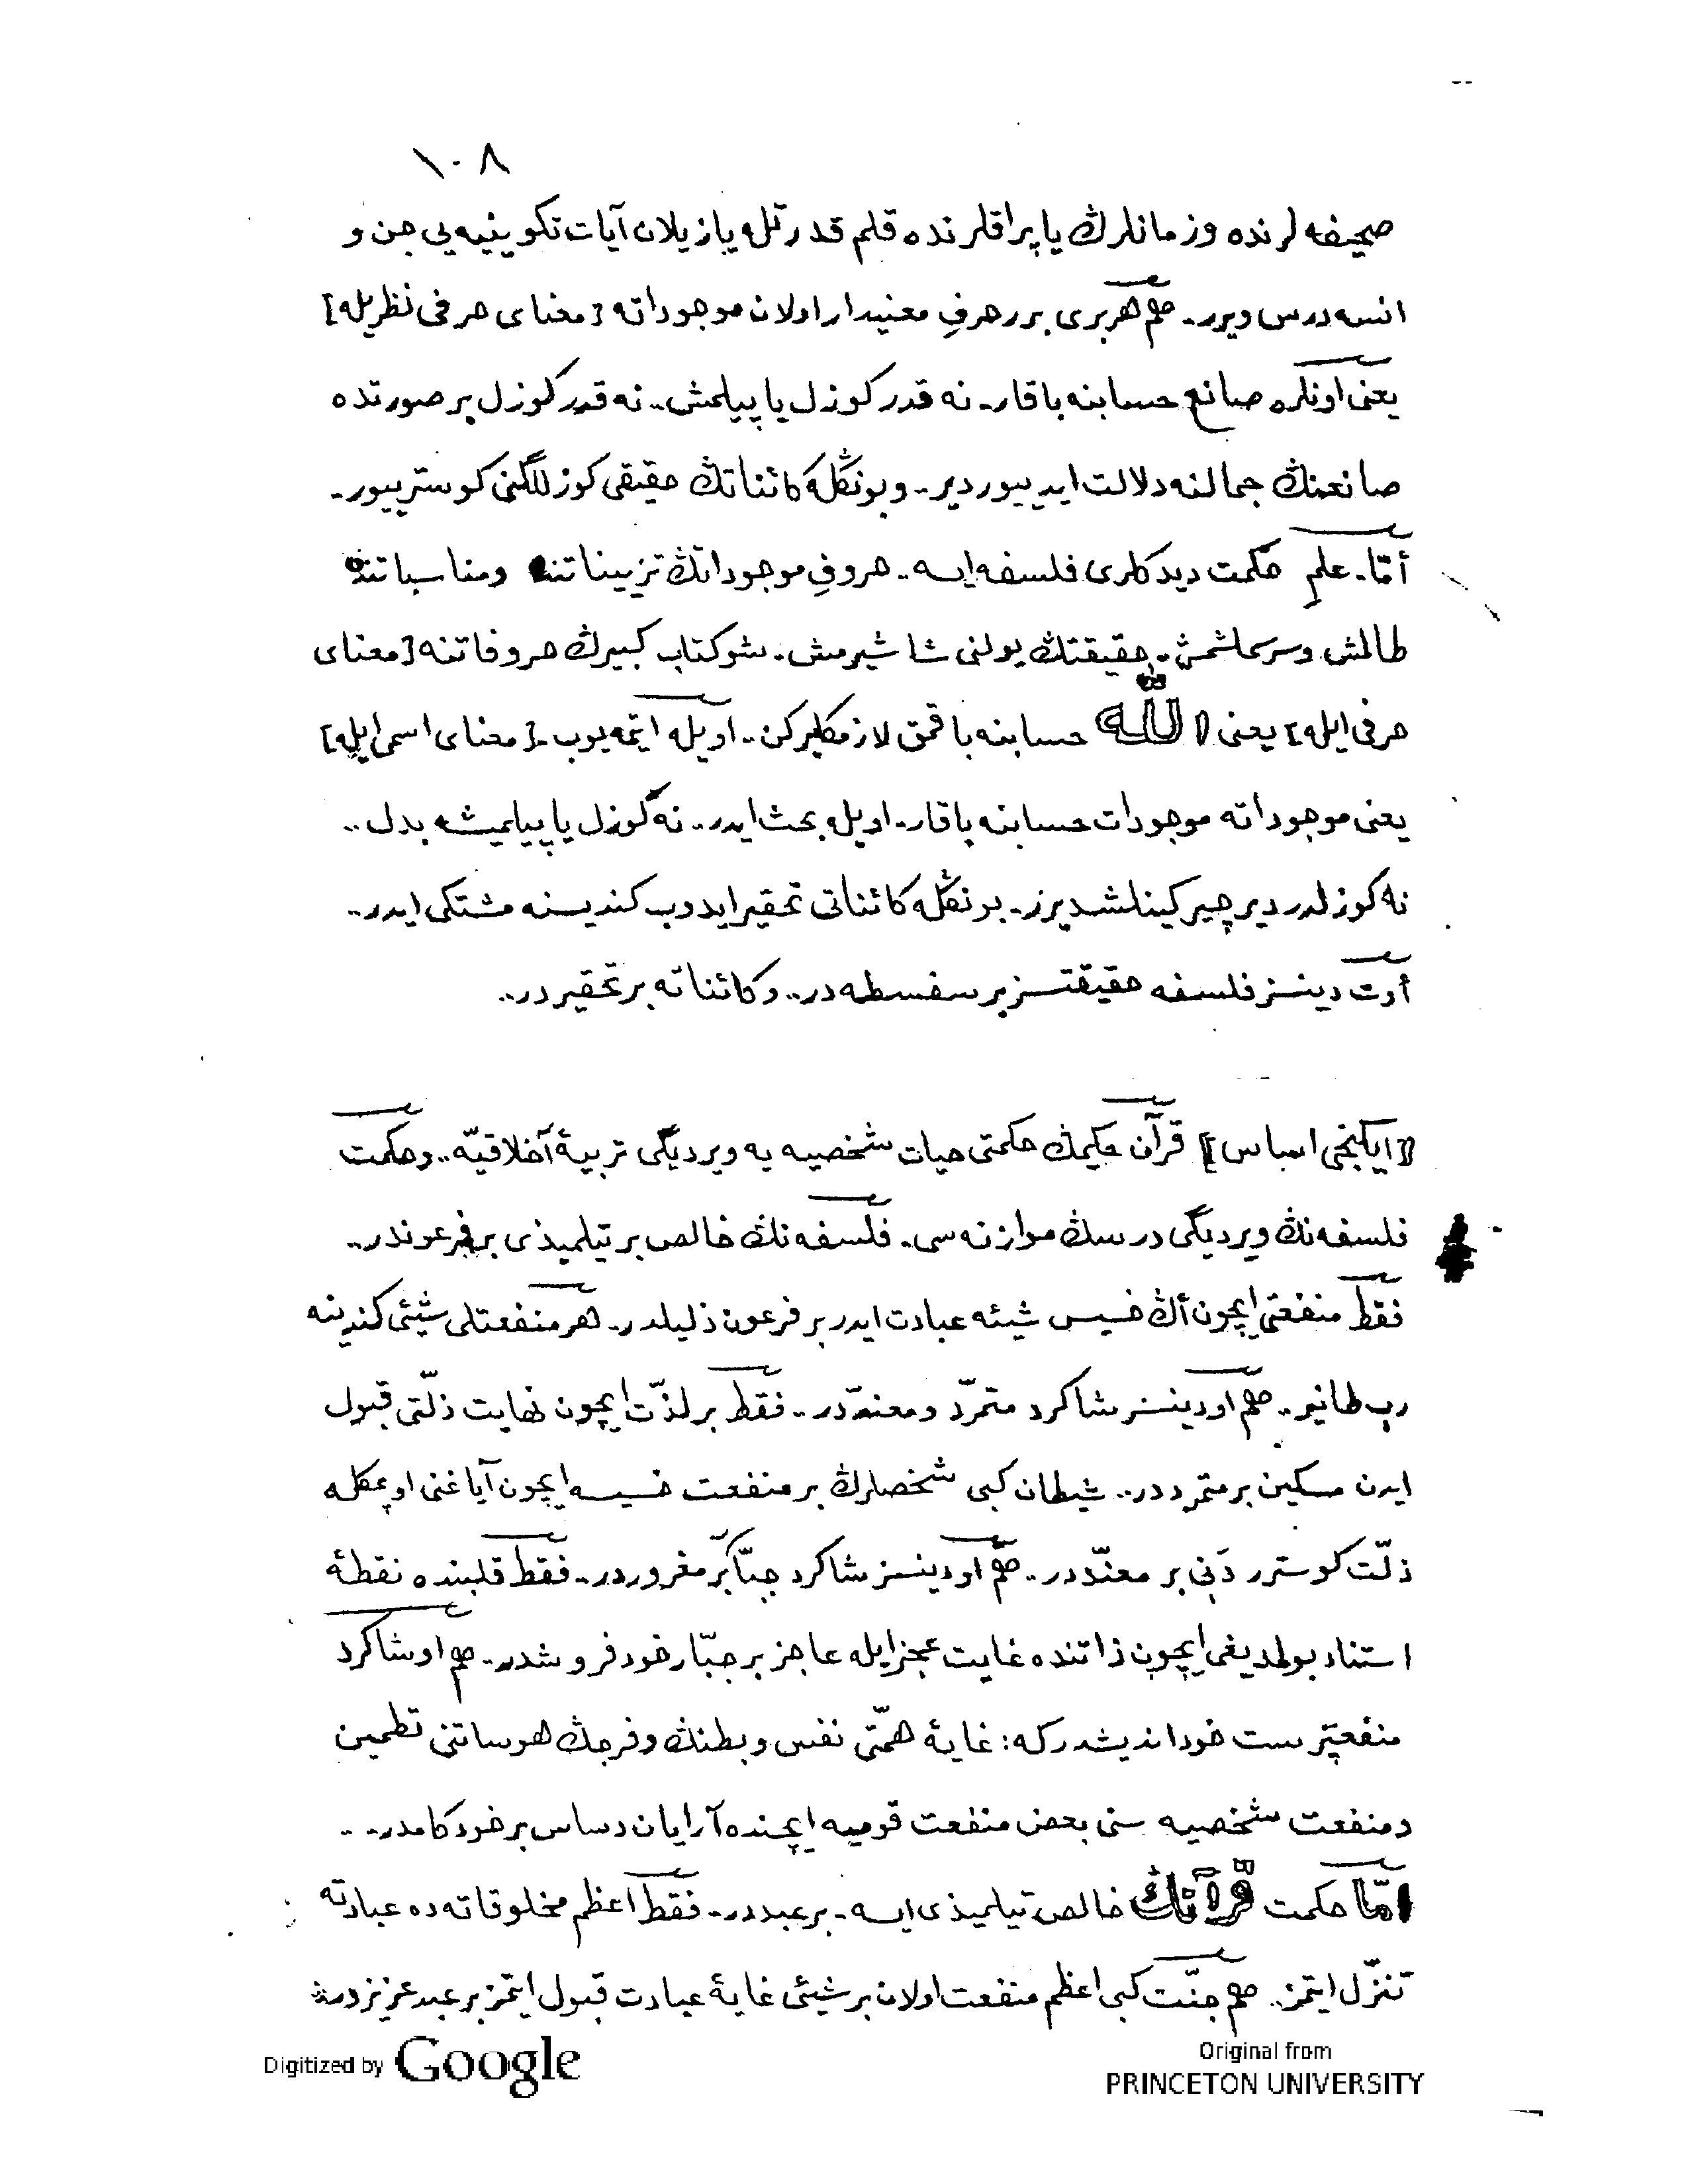 ١٠٨
صحیفه لرنده وزمانلرڭ یاپراقلرنده قلم قدرتله یازیلان آیات تكوینیه یی جن و
انسه درس ویرر. هم هربری برر حرفِ معنیدار اولان موجوداته [معنای حرفی نظریله]
یعنی اونلره صانع حسابنه باقار. نه قدر كوزل یاپیلمش.. نه قدر كوزل بر صورتده
صانعنڭ جمالنه دلالت ایدییور دیر.. و بونڭله كائناتڭ حقیقی كوزللگنی كوسترییور.
أمّا. علم حكمت دیدكلری فلسفه ایسه.. حروفِ موجوداتڭ تزییناتنده ومناسباتنده
طالمش وسرسملشمش. حقیقتڭ یولنی شاشیرمش. شو كتاب كبیرڭ حروفاتنه [معنای
حرفی ایله] یعنی الله حسابنه باقمق لازمكلیركن.. اویله ایتمه یوب. [معنای اسمی ایله]
یعنی موجوداته موجودات حسابنه باقار. اویله بحث ایدر.. نه گوزل یاپیلمیشه بدل..
نه كوزلدر دیر چیركینلشدیرر. بونڭله كائناتی تحقیر ایدوب كندیسنه مشتكی ایدر..
أوت دینسز فلسفه حقیقتسز بر سفسطه در.. و كائناته بر تحقیردر..
[ایكنجی اساس] قرآن حكیمڭ حكمتی حیات شخصیه یه ویردیگی تربیۀ أخلاقیّه.. وحكمت
فلسفه نڭ ویردیگی درسڭ موازنه سی. فلسفه نڭ خالص بر تیلمیذی بر فرعوندر..
فقط منفعتی ایچون أڭ خسیس شیئه عبادت ایدر بر فرعون ذلیلدر. هر منفعتلی شیئی كندینه
رب طانیر.. هم او دینسز شاكرد متمرّد ومعنّددر.. فقط بر لذّت ایچون نهایت ذلّتی قبول
ایدن مسكین بر متمرددر.. شیطان كبی شخصلرڭ بر منفعت خسیسه ایچون آیاغنی اوپمكله
ذلّت كوسترر دَنی بر معنّددر.. هم او دینسز شاكرد جبّار بر مغروردر.. فقط قلبنده نقطۀ
استناد بولمدیغی ایچون ذاتنده غایت عجز ایله عاجز بر جبّار خودفروشدر. هم او شاكرد
منفعتپرست خوداندیشدركه: غایۀ همّتی نفس وبطنڭ وفرجڭ هوساتنی تطمین
ومنفعت شخصیه سنی بعض منفعت قومیه ایچنده آرایان دساس بر خودكامدر..
امّا حكمت قرآنڭ خالص تیلمیذی ایسه. بر عبددر. فقط أعظم مخلوقاته ده عبادته
تنزّل ایتمز. هم جنّت كبی اعظم منفعت اولان بر شیئی غایۀ عبادت قبول ایتمز بر عبد عزیزدر
Digitized by Google
Original from
PRINCETON UNIVERSITY